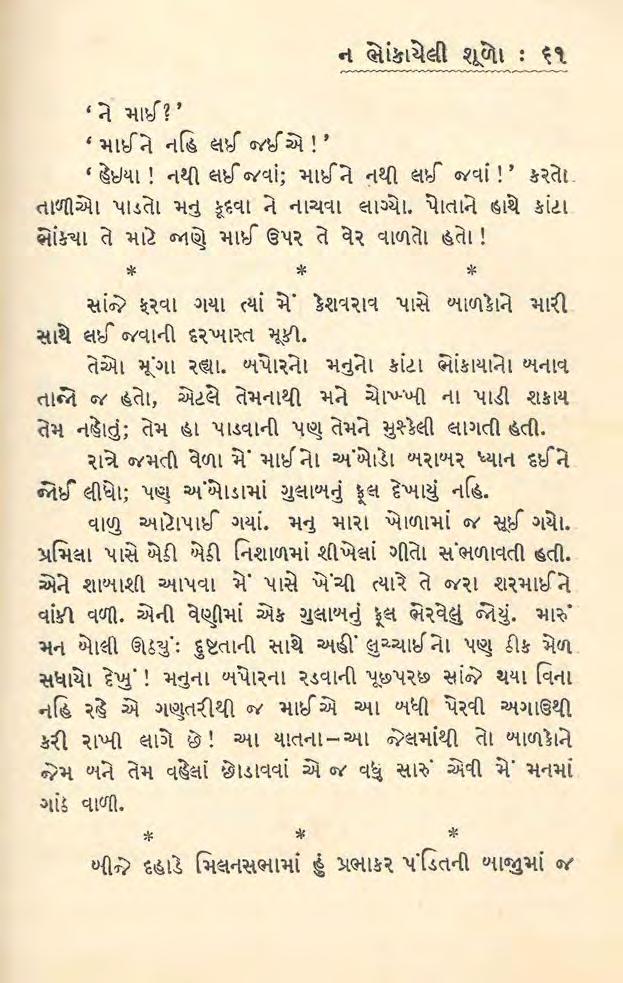 ન ભોંકાયેલી શૂળો : ૬૧
‘ને માઈ?’
‘માઈને નહિ લઈ જઈએ!’
‘હેઇયા! નથી લઈ જવાં; માઈને નથી લઈ જવાં!’ કરતો
તાળીઓ પાડતો મનુ કૂદવા ને નાચવા લાગ્યો. પોતાને હાથે કાંટા
ભોંક્યા તે માટે જાણે માઈ ઉપર તે વેર વાળતો હતો!
* * *
સાંજે ફરવા ગયા ત્યાં મેં કેશવરાવ પાસે બાળકોને મારી
સાથે લઈ જવાની દરખાસ્ત મૂકી.
તેઓ મૂંગા રહ્યા. બપોરનો મનુનો કાંટા ભોંકાયાનો બનાવ
તાજો જ હતો, એટલે તેમનાથી મને ચોખ્ખી ના પાડી શકાય
તેમ નહોતું; તેમ હા પાડવાની પણ તેમને મુશ્કેલી લાગતી હતી.
રાત્રે જમતી વેળા મેં માઈનો અંબોડો બરાબર ધ્યાન દઈને
જોઈ લીધો; પણ અંબોડામાં ગુલાબનું ફૂલ દેખાયું નહિ.
વાળુ આટોપાઈ ગયાં. મનુ મારા ખોળામાં જ સૂઈ ગયો.
પ્રમિલા પાસે બેઠી બેઠી નિશાળમાં શીખેલાં ગીતો સંભળાવતી હતી.
એને શાબાશી આપવા મેં પાસે ખેંચી ત્યારે તે જરા શરમાઈને
વાંકી વળી. એની વેણીમાં એક ગુલાબનું ફૂલ ભેરવેલું જોયું. મારું
મન બોલી ઊઠ્યુંઃ દુષ્ટતાની સાથે અહીં લુચ્ચાઈનો પણ ઠીક મેળ
સધાયો દેખું! મનુના બપોરના રડવાની પૂછપરછ સાંજે થયા વિના
નહિ રહે એ ગણતરીથી જ માઈએ આ બધી પેરવી અગાઉથી
કરી રાખી લાગે છે! આ યાતના–આ જેલમાંથી તો બાળકોને
જેમ બને તેમ વહેલાં છોડાવવાં એ જ વધુ સારું એવી મેં મનમાં
ગાંઠ વાળી.
* * *
બીજે દહાડે મિલનસભામાં હું પ્રભાકર પંડિતની બાજુમાં જ